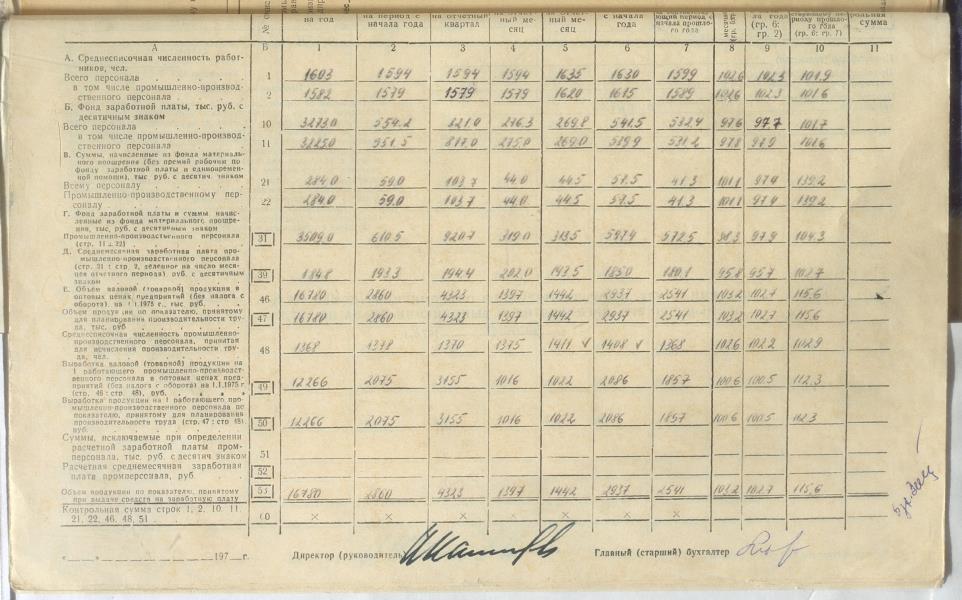 на год на период с начала года на отчетный квартал сяц сяц с начала года
А Б 1 2 3 4 5 6 7 8 9 10 11
А. Среднесписочная численность работ-
ников, чел.
Всего персонала 1 1603 1594 1594 1594 1635 1630 1599 102.6 102.3 101.9
в том числе промышленно-производ-
ственного персонала 2 1582 1579 1579 1579 1620 1615 1589 102.6 102.3 101.6
Б. Фонд заработной платы, тыс. руб. с
десятичным знаком
Всего персонала 10 3273.0 554.2 821.0 276.3 269.8 541.5 532.4 97.6 97.7 101.7
в том числе промышленно-производ-
ственного персонала 11 3225.0 551.5 817.0 275.0 269.0 539.9 531.2 97.8 97.9 101.6
В. Суммы, начисленные из фонда материаль-
ного поощрения (без премий рабочим по
фонду заработной платы и единовремен-
ной помощи), тыс. руб. с десятич. знаком
Всему персоналу 21 284.0 59.0 103.7 44.0 44.5 57.5 41.3 101.1 97.4 139.2
Промышленно-производственному пер-
соналу 22 284.0 59.0 103.7 44.0 44.5 57.5 41.3 101.1 97.4 139.2
Г. Фонд заработной платы и суммы, начис-
ленные из фонда материального поощре-
ния, тыс. руб. с десятичным знаком
Промышленно-производственного персонала
(стр. 11 + 22) 31 3509.0 610.5 920.7 319.0 313.5 597.4 572.5 98.3 97.9 104.3
Д. Среднемесячная заработная плата про-
мышленно-производственного персонала
(стр. 31 : стр. 2, деленное на число меся-
цев отчетного периода) руб. с десятичным
знаком 39 184.8 193.3 194.4 202.0 193.5 185.0 180.1 95.8 95.7 102.7
Е. Объем валовой (товарной) продукции в
оптовых ценах предприятий (без налога с
оборота), на 1.1.1975 г., тыс. руб. 46 16780 2860 4323 1397 1442 2937 2541 103.2 102.7 115.6
Объем продукции по показателю, принятому
для планирования производительности тру-
да, тыс. руб 47 16780 2860 4323 1397 1442 2937 2541 103.2 102.7 115.6
Среднесписочная численность промышленно-
производственного персонала, принятая
для исчисления производительности тру-
да, чел. 48 1368 1378 1370 1375 1411 1408 1368 102.6 102.2 102.9
Выработка валовой (товарной) продукции на
1 работающего промышленно-производст-
венного персонала в оптовых ценах пред-
приятий (без налога с оборота) на 1.1.1975 г.
(стр. 46 : стр. 48), руб. 49 12266 2075 3155 1016 1022 2086 1857 100.6 100.5 112.3
Выработка продукции на 1 работающего про-
мышленно-производственного персонала по
показателю, принятому для планирования
производительности труда (стр. 47 : стр 48)
руб. 50 12266 2075 3155 1016 1022 2086 1857 100.6 100.5 112.3
Суммы, исключаемые при определении
расчетной заработной платы пром-
персонала, тыс. руб. с десятич знаком 51
Расчетная среднемесячная заработная
плата промперсонала, руб 52
Объем продукции по показателю, принятому
при выдаче средств на заработную плату 53 16780 2860 4323 1397 1442 2937 2541 103.2 102.7 115.6
Контрольная сумма строк 1, 2, 10, 11,
21, 22, 46, 48, 51 60 × × × × × × ×
« » 197 г. Директор (руководитель) Главный (старший) бухгалтер